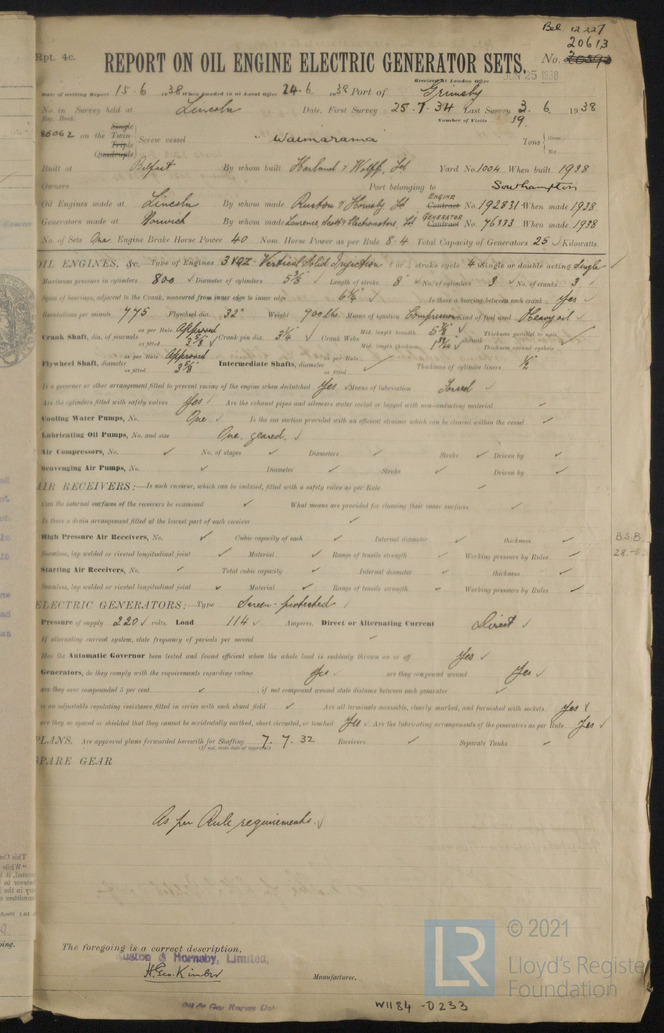 Bel. 12227
20613
Rpt. 4c.
REPORT ON OIL ENGINE ELECTRIC GENERATOR SETS.
No. 20593
Received at London Office JUN 25 1938
Date of writing Report 15.6 1938 When handed in at Local Office 24.6 1938 Port of Grimsby
No. in Survey held at Lincoln Date, First Survey 25.7.34 Last Survey 3.6.1938
Reg. Book. Number of Visits 19.
86062 on the Single Twin Triple Quadruple Screw vessel "Waimarama" Tons Gross Net
Built at Belfast By whom built Harland & Wolff, Ltd Yard No. 1004 When built 1938
Owners Port belonging to Southampton
Oil Engines made at Lincoln By whom made Ruston & Hornsby Ld ENGINE Contract No. 192831 When made 1938
Generators made at Norwich By whom made Laurence, Scott & Electromotors, Ld GENERATOR Contract No. 76333 When made 1938
No. of Sets One Engine Brake Horse Power 40 Nom. Horse Power as per Rule 8.4 Total Capacity of Generators 25 Kilowatts.
OIL ENGINES, &c. Type of Engines 3 VQZ Vertical Solid Injection 2 or 4 stroke cycle 4 Single or double acting Single
Maximum pressure in cylinders 800 Diameter of cylinders 5 3/8" Length of stroke 8" No. of cylinders 3 No. of cranks 3
Span of bearings, adjacent to the Crank, measured from inner edge to inner edge Is there a bearing between each crank Yes
Revolutions per minute 775 Flywheel dia. 32" Weight 900 lbs. Means of ignition Compression Kind of fuel used Heavy oil
Crank Shaft, dia. of journals as per Rule Approved as fitted Crank pin dia. 3 1/4" Crank Webs Mid. length breadth Mid. length thickness Thickness parallel to axis Thickness around eyehole
Flywheel Shafts, diameter as per Rule Approved as fitted Intermediate Shafts, diameter as per Rule as fitted Thickness of cylinder liners 1/2"
Is a governor or other arrangement fitted to prevent racing of the engine when declutched Yes Means of lubrication Forced
Are the cylinders fitted with safety valves Yes Are the exhaust pipes and silencers water cooled or lagged with non-conducting material ✓
Cooling Water Pumps, No. One Is the sea suction provided with an efficient strainer which can be cleared within the vessel ✓
Lubricating Oil Pumps, No. and size One, geared.
Air Compressors, No. ✓ No. of stages ✓ Diameters ✓ Stroke ✓ Driven by ✓
Scavenging Air Pumps, No. ✓ Diameter ✓ Stroke ✓ Driven by ✓
AIR RECEIVERS:— Is each receiver, which can be isolated, fitted with a safety valve as per Rule ✓
Can the internal surfaces of the receivers be examined ✓ What means are provided for cleaning their inner surfaces ✓
Is there a drain arrangement fitted at the lowest part of each receiver ✓
High Pressure Air Receivers, No. ✓ Cubic capacity of each ✓ Internal diameter ✓ thickness ✓
Seamless, lap welded or riveted longitudinal joint ✓ Material ✓ Range of tensile strength ✓ Working pressure by Rules ✓
Starting Air Receivers, No. ✓ Total cubic capacity ✓ Internal diameter ✓ thickness ✓
Seamless, lap welded or riveted longitudinal joint ✓ Material ✓ Range of tensile strength ✓ Working pressure by Rules ✓
ELECTRIC GENERATORS:— Type Screen-protected
Pressure of supply 220 volts. Load 114 Amperes. Direct or Alternating Current Direct
If alternating current system, state frequency of periods per second ✓
Has the Automatic Governor been tested and found efficient when the whole load is suddenly thrown on or off Yes
Generators, do they comply with the requirements regarding rating Yes are they compound wound Yes
are they over compounded 5 per cent. ✓ if not compound wound state distance between each generator ✓
is an adjustable regulating resistance fitted in series with each shunt field ✓ Are all terminals accessible, clearly marked, and furnished with sockets Yes
are they so spaced or shielded that they cannot be accidentally earthed, short circuited, or touched Yes Are the lubricating arrangements of the generators as per Rule Yes
PLANS. Are approved plans forwarded herewith for Shafting 7.7.32 Receivers ✓ Separate Tanks ✓
(If not, state date of approval)
SPARE GEAR
As per Rule requirements.
The foregoing is a correct description,
Ruston & Hornsby, Limited,
H. Geo. Kimber
Manufacturer.
W1184-0233
B.S.B.
LR
© 2021
Lloyd's Register
Foundation